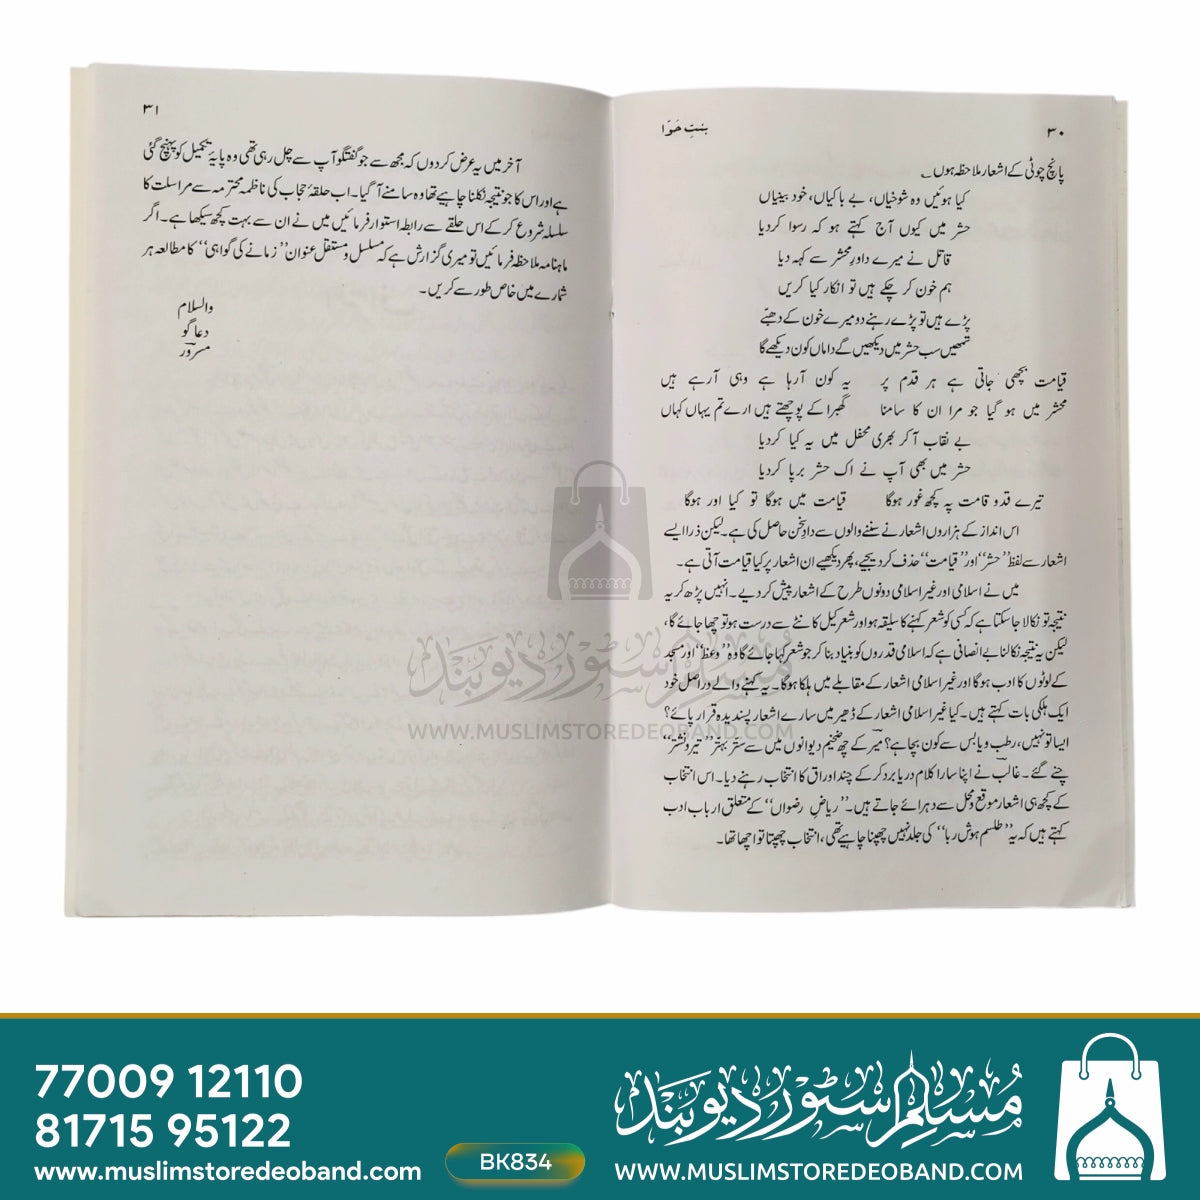 ۳۰
بنتِ حوّا
پانچ چوٹی کے اشعار ملاحظہ ہوں۔
کیا ہوئیں وہ شوخیاں، بے باکیاں، خود بینیاں
حشر میں کیوں آج کہتے ہو کہ رسوا کردیا
قاتل نے میرے داورِ محشر سے کہہ دیا
ہم خون کر چکے ہیں تو انکار کیا کریں
پڑے ہیں تو پڑے رہنے دو میرے خون کے دھبّے
تمھیں سب حشر میں دیکھیں گے داماں کون دیکھے گا
قیامت بچھی جاتی ہے ہر قدم پر یہ کون آرہا ہے وہی آرہے ہیں
محشر میں ہو گیا جو مرا ان کا سامنا گھبرا کے پوچھتے ہیں ارے تم یہاں کہاں
بے نقاب آکر بھری محفل میں یہ کیا کردیا
حشر میں بھی آپ نے اک حشر برپا کردیا
تیرے قد و قامت پہ کچھ غور ہوگا قیامت میں ہوگا تو کیا اور ہوگا
اس انداز کے ہزاروں اشعار نے سننے والوں سے دادِ سخن حاصل کی ہے۔ لیکن ذرا ایسے
اشعار سے لفظ ’’حشر‘‘ اور ’’قیامت‘‘ حذف کر دیجیے، پھر دیکھیے ان اشعار پر کیا قیامت آتی ہے۔
میں نے اسلامی اور غیر اسلامی دونوں طرح کے اشعار پیش کر دیے۔ انہیں پڑھ کر یہ
نتیجہ تو نکالا جا سکتا ہے کہ کسی کو شعر کہنے کا سلیقہ ہو اور شعر کیل کانٹے سے درست ہو تو چھا جائے گا،
لیکن یہ نتیجہ نکالنا بے انصافی ہے کہ اسلامی قدروں کو بنیاد بنا کر جو شعر کہا جائے گا وہ ’’وعظ‘‘ اور مسجد
کے لوٹوں کا ادب ہوگا اور غیر اسلامی اشعار کے مقابلے میں ہلکا ہوگا۔ یہ کہنے والے دراصل خود
ایک ہلکی بات کہتے ہیں۔ کیا غیر اسلامی اشعار کے ڈھیر میں سارے اشعار پسندیدہ قرار پائے؟
ایسا تو نہیں، رطب و یابس سے کون بچا ہے؟ میرؔ کے چھ ضخیم دیوانوں میں سے ستّر بہتّر ’’تیر و نشتر‘‘
چنے گئے۔ غالبؔ نے اپنا سارا کلام دریا برد کر کے چند اوراق کا انتخاب رہنے دیا۔ اس انتخاب
کے کچھ ہی اشعار موقع و محل سے دہرائے جاتے ہیں۔ ’’ریاض رضواں‘‘ کے متعلق اربابِ ادب
کہتے ہیں کہ یہ ’’طلسم ہوش ربا‘‘ کی جلد نہیں چھپنا چاہیے تھی، انتخاب چھپتا تو اچھا تھا۔
۳۱
آخر میں یہ عرض کردوں کہ مجھ سے جو گفتگو آپ سے چل رہی تھی وہ پایۂ تکمیل کو پہنچ گئی
ہے اور اس کا جو نتیجہ نکلنا چاہیے تھا وہ سامنے آگیا۔ اب حلقۂ حجاب کی ناظمہ محترمہ سے مراسلت کا
سلسلہ شروع کر کے اس حلقے سے رابطہ استوار فرمائیں میں نے ان سے بہت کچھ سیکھا ہے۔ اگر
ماہنامہ ملاحظہ فرمائیں تو میری گزارش ہے کہ مسلسل و مستقل عنوان ’’زمانے کی گواہی‘‘ کا مطالعہ ہر
شمارے میں خاص طور سے کریں۔
والسلام
دعا گو
مسرورؔ
مسلم سٹور دیوبند
WWW.MUSLIMSTOREDEOBAND.COM
77009 12110
81715 95122
www.muslimstoredeoband.com
BK834
مسلم سٹور دیوبند
WWW.MUSLIMSTOREDEOBAND.COM